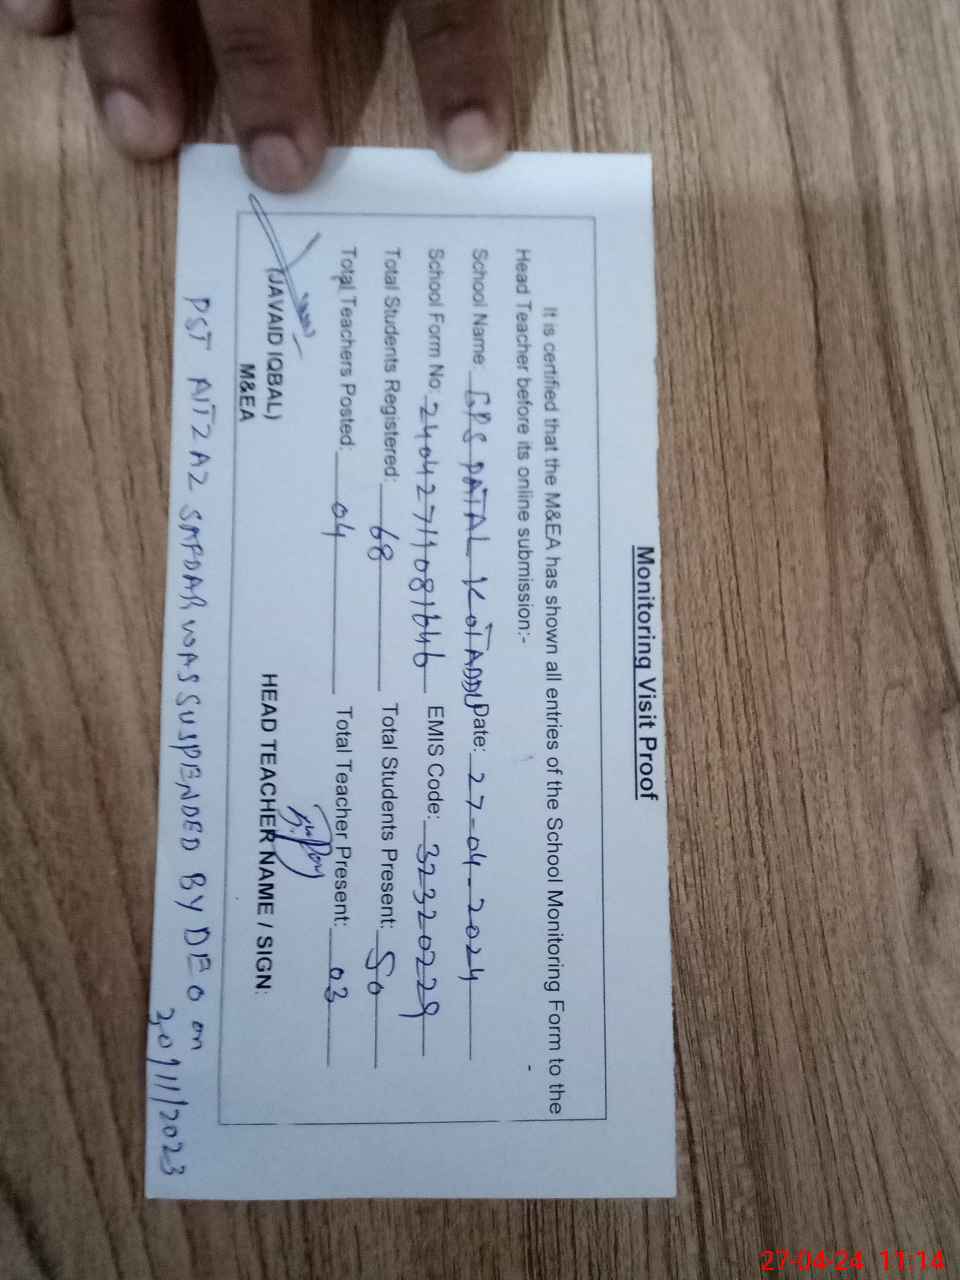 Monitoring Visit Proof
It is certified that the M&EA has shown all entries of the School Monitoring Form to the
Head Teacher before its online submission:-
School Name: GPS PATAL KOT ADDU Date: 27-04-2024
School Form No: 2404271081646 EMIS Code: 32320229
Total Students Registered: 68 Total Students Present: 50
Total Teachers Posted: 04 Total Teacher Present: 03
(JAVAID IQBAL) HEAD TEACHER NAME / SIGN:
M&EA
PST AITZAZ SAFDAR WAS SUSPENDED BY DEO on
30/11/2023
27-04-24 11:14